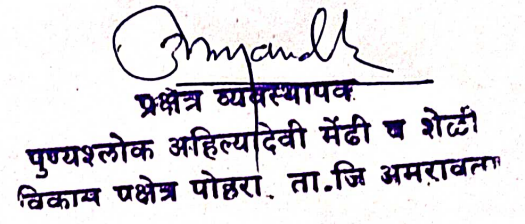 प्रक्षेत्र व्यवस्थापक
पुण्यश्लोक अहिल्यादेवी मेंढी व शेळी
विकास प्रक्षेत्र पोहरा. ता.जि अमरावती